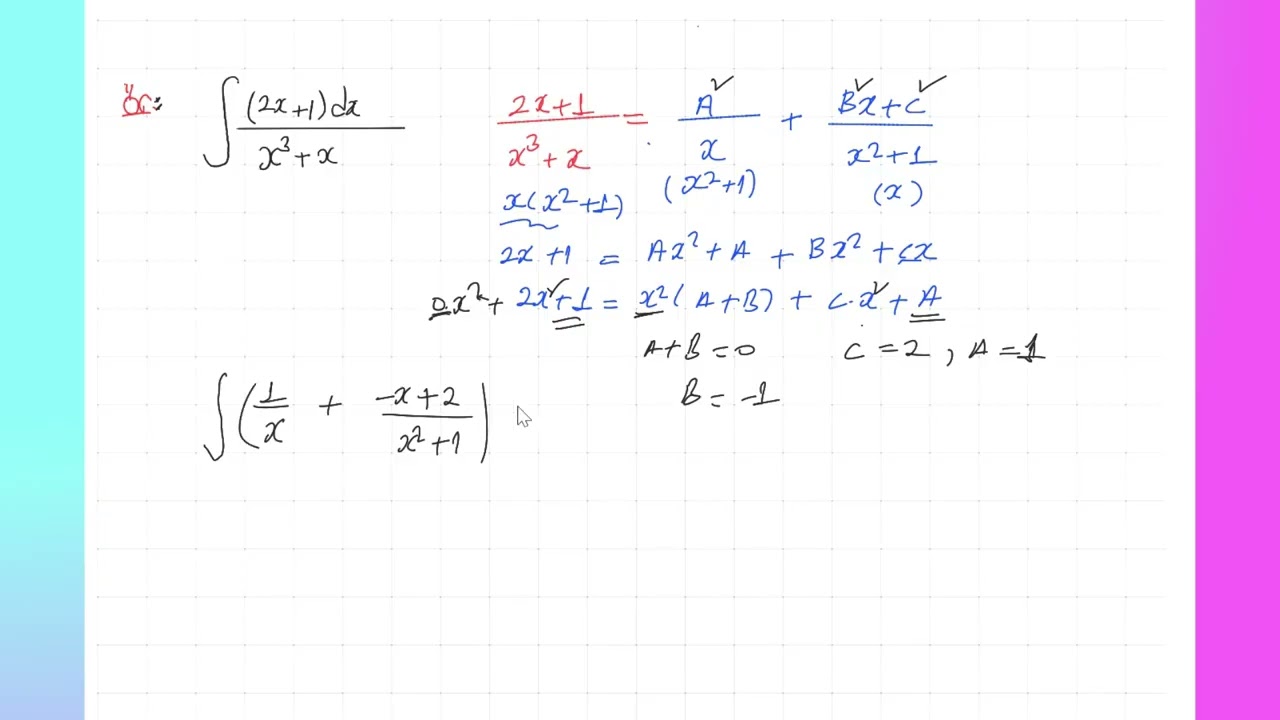 Ör: ∫ (2x+1)dx / x³+x
2x+1 / x³+x = A / x + Bx+C / x²+1
x(x²+1) (x²+1) (x)
2x+1 = Ax²+A + Bx²+Cx
0x²+ 2x+1 = x²(A+B) + C.x + A
A+B=0 C=2, A=1
B=-1
∫(1/x + -x+2 / x²+1)